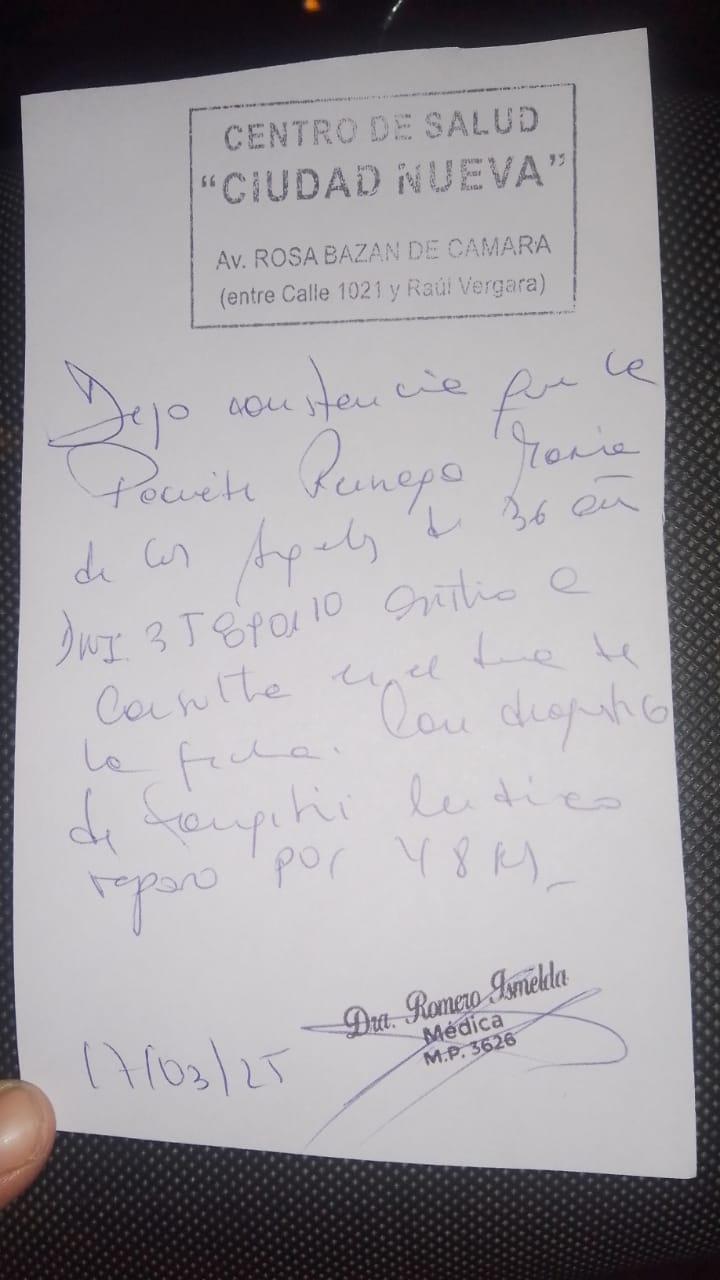 CENTRO DE SALUD
“CIUDAD NUEVA”
Av. ROSA BAZAN DE CAMARA
(entre Calle 1021 y Raúl Vergara)
Dejo constancia que la
Paciente Maria
de los Angeles de 36 años
DNI asistio a
Consulta en el dia de
la fecha. Con diagnostico
de
reposo por 48 hs
17/03/25
Dra. Romero Ismelda
Médica
M.P. 3626